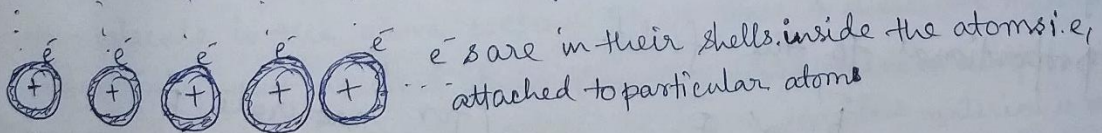 e⁻ e⁻ e⁻ e⁻ e⁻ e⁻s are in their shells.inside the atomsi.e,
+ + + + + ... attached to particular atoms